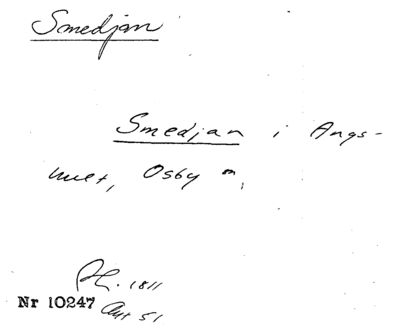 Smedjan
Smedjan i Ängs-
huset, Osby sn,
1811
Nr 10247 Akt 51